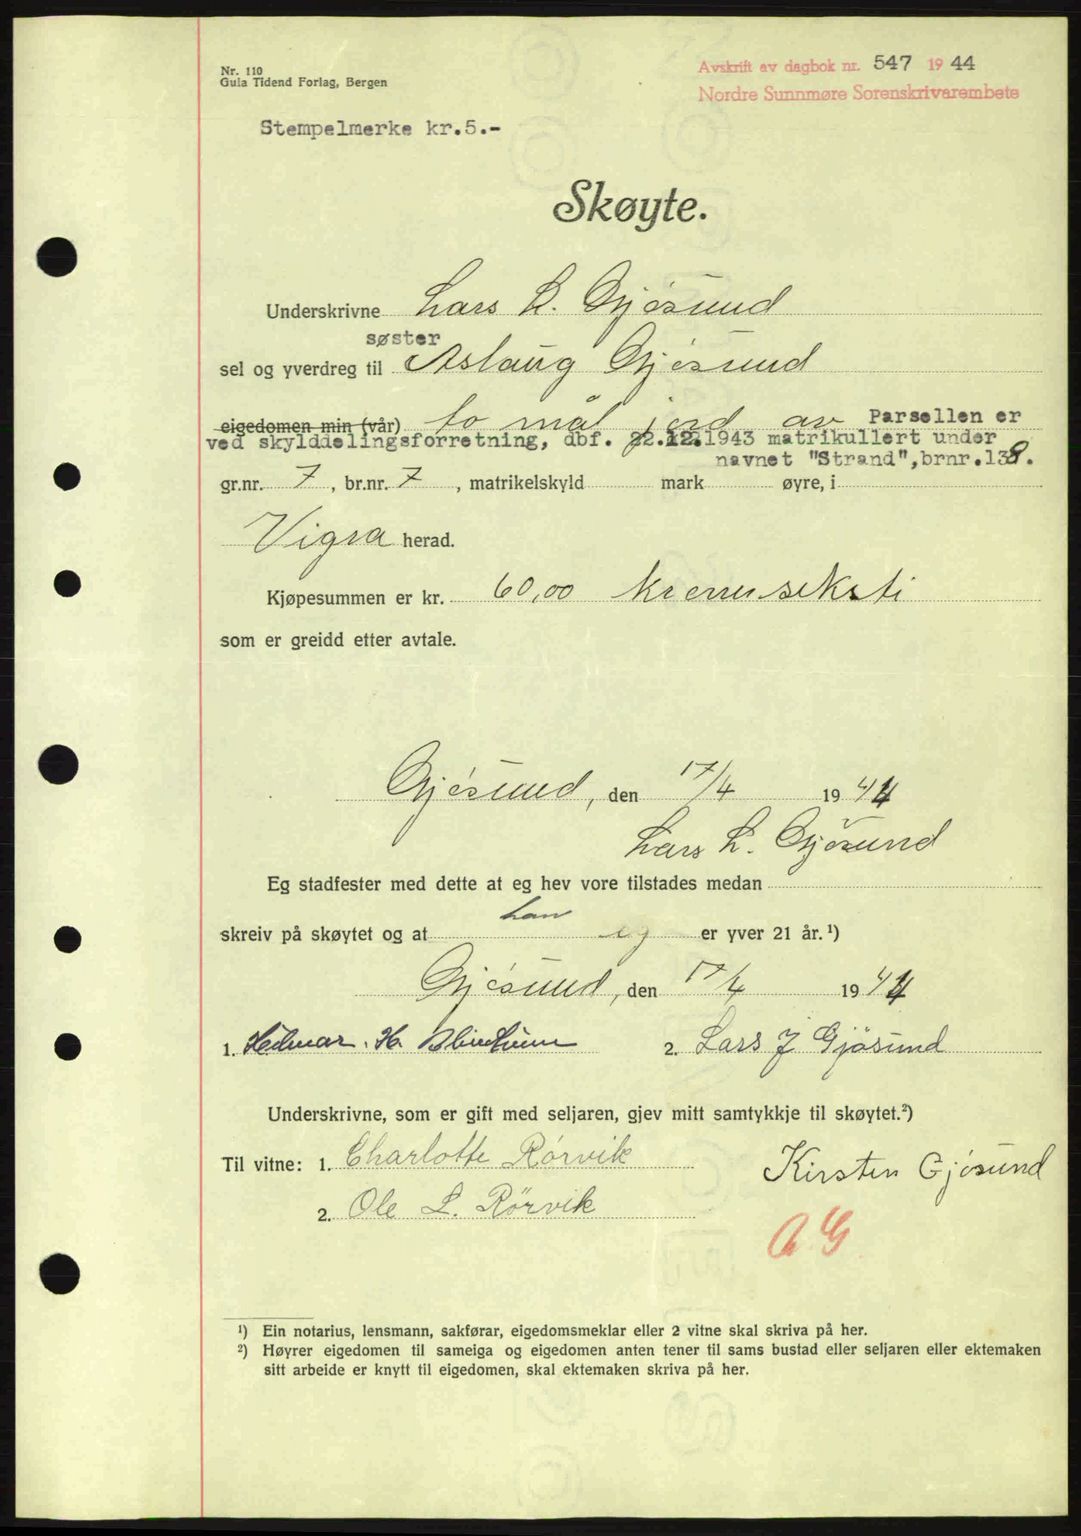 Nr. 110
Gula Tidend Forlag, Bergen
Avskrift av dagbok nr. 547 1944
Nordre Sunnmøre Sorenskrivarembete
Stempelmerke kr.5.-
Skøyte.
Underskrivne Lars L. Gjøsund
søster
sel og yverdreg til Aslaug Gjøsund
eigedomen min (vår) to mål jord av Parsellen er
ved skylddelingsforretning, dbf. 22.12.1943 matrikullert under
navnet "Strand", brnr.138.
gr.nr. 7, br.nr. 7, matrikelskyld mark øyre, i
Vigra herad.
Kjøpesummen er kr. 60,00 kronerseksti
som er greidd etter avtale.
Gjøsund, den 17/4 1944
Lars L. Gjøsund
Eg stadfester med dette at eg hev vore tilstades medan
skreiv på skøytet og at han er yver 21 år.¹)
Gjøsund, den 17/4 1944
1. Hilmar. H. 2. Lars J Gjøsund
Underskrivne, som er gift med seljaren, gjev mitt samtykkje til skøytet.²)
Til vitne: 1. Charlotte Rørvik Kirsten Gjøsund
2. Ole L. Rørvik
A G
¹) Ein notarius, lensmann, sakførar, eigedomsmeklar eller 2 vitne skal skriva på her.
²) Høyrer eigedomen til sameiga og eigedomen anten tener til sams bustad eller seljaren eller ektemaken
sitt arbeide er knytt til eigedomen, skal ektemaken skriva på her.